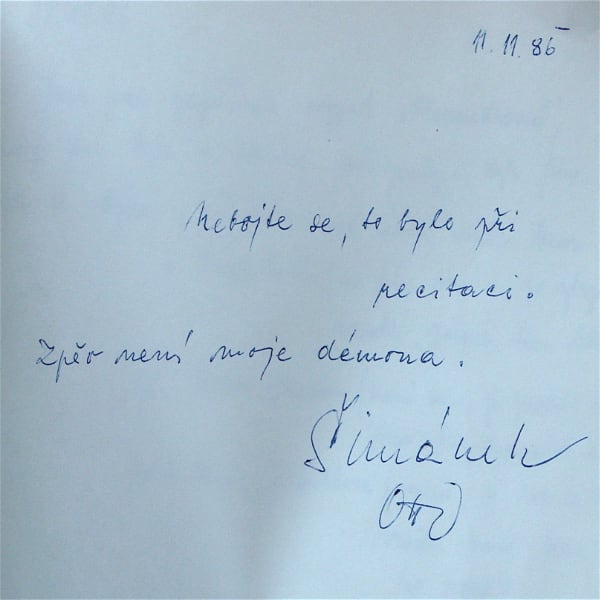 11. 11. 85
Nebojte se, to bylo při
recitaci.
Zpěv není moje démona.
Šimánek
Otto